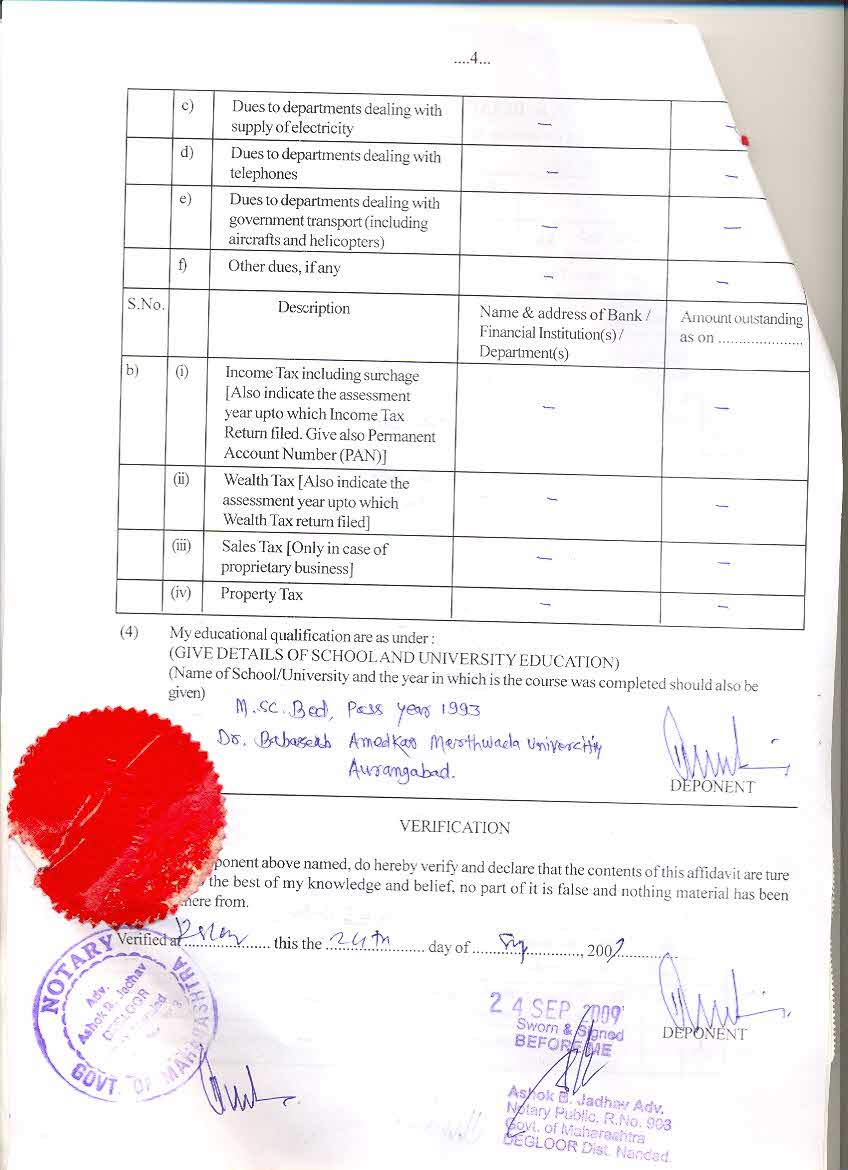 ....4...
c) Dues to departments dealing with
supply of electricity – –
d) Dues to departments dealing with
telephones – –
e) Dues to departments dealing with
government transport (including
aircrafts and helicopters) – –
f) Other dues, if any – –
S.No. Description Name & address of Bank /
Financial Institution(s) /
Department(s)
Amount outstanding
as on .....................
b) (i) Income Tax including surchage
[Also indicate the assessment
year upto which Income Tax
Return filed. Give also Permanent
Account Number (PAN)] – –
(ii) Wealth Tax [Also indicate the
assessment year upto which
Wealth Tax return filed] – –
(iii) Sales Tax [Only in case of
proprietary business] – –
(iv) Property Tax – –
(4) My educational qualification are as under :
(GIVE DETAILS OF SCHOOL AND UNIVERSITY EDUCATION)
(Name of School/University and the year in which is the course was completed should also be
given)
M.SC. Bed, Pass year 1993
Dr. Babaseab Amedkar Marthwada University
Aurangabad.
DEPONENT
VERIFICATION
ponent above named, do hereby verify and declare that the contents of this affidavit are ture
the best of my knowledge and belief, no part of it is false and nothing material has been
here from.
Verified at ............ this the 24th day of ..............., 2009
DEPONENT
24 SEP 2009
Sworn & Signed
BEFORE ME
Ashok B. Jadhav Adv.
Notary Public, R.No. 903
Govt. of Maharashtra
DEGLOOR Dist. Nanded.
NOTARY
Adv.
Ashok B. Jadhav
DEGLOOR
GOVT. OF MAHARASHTRA